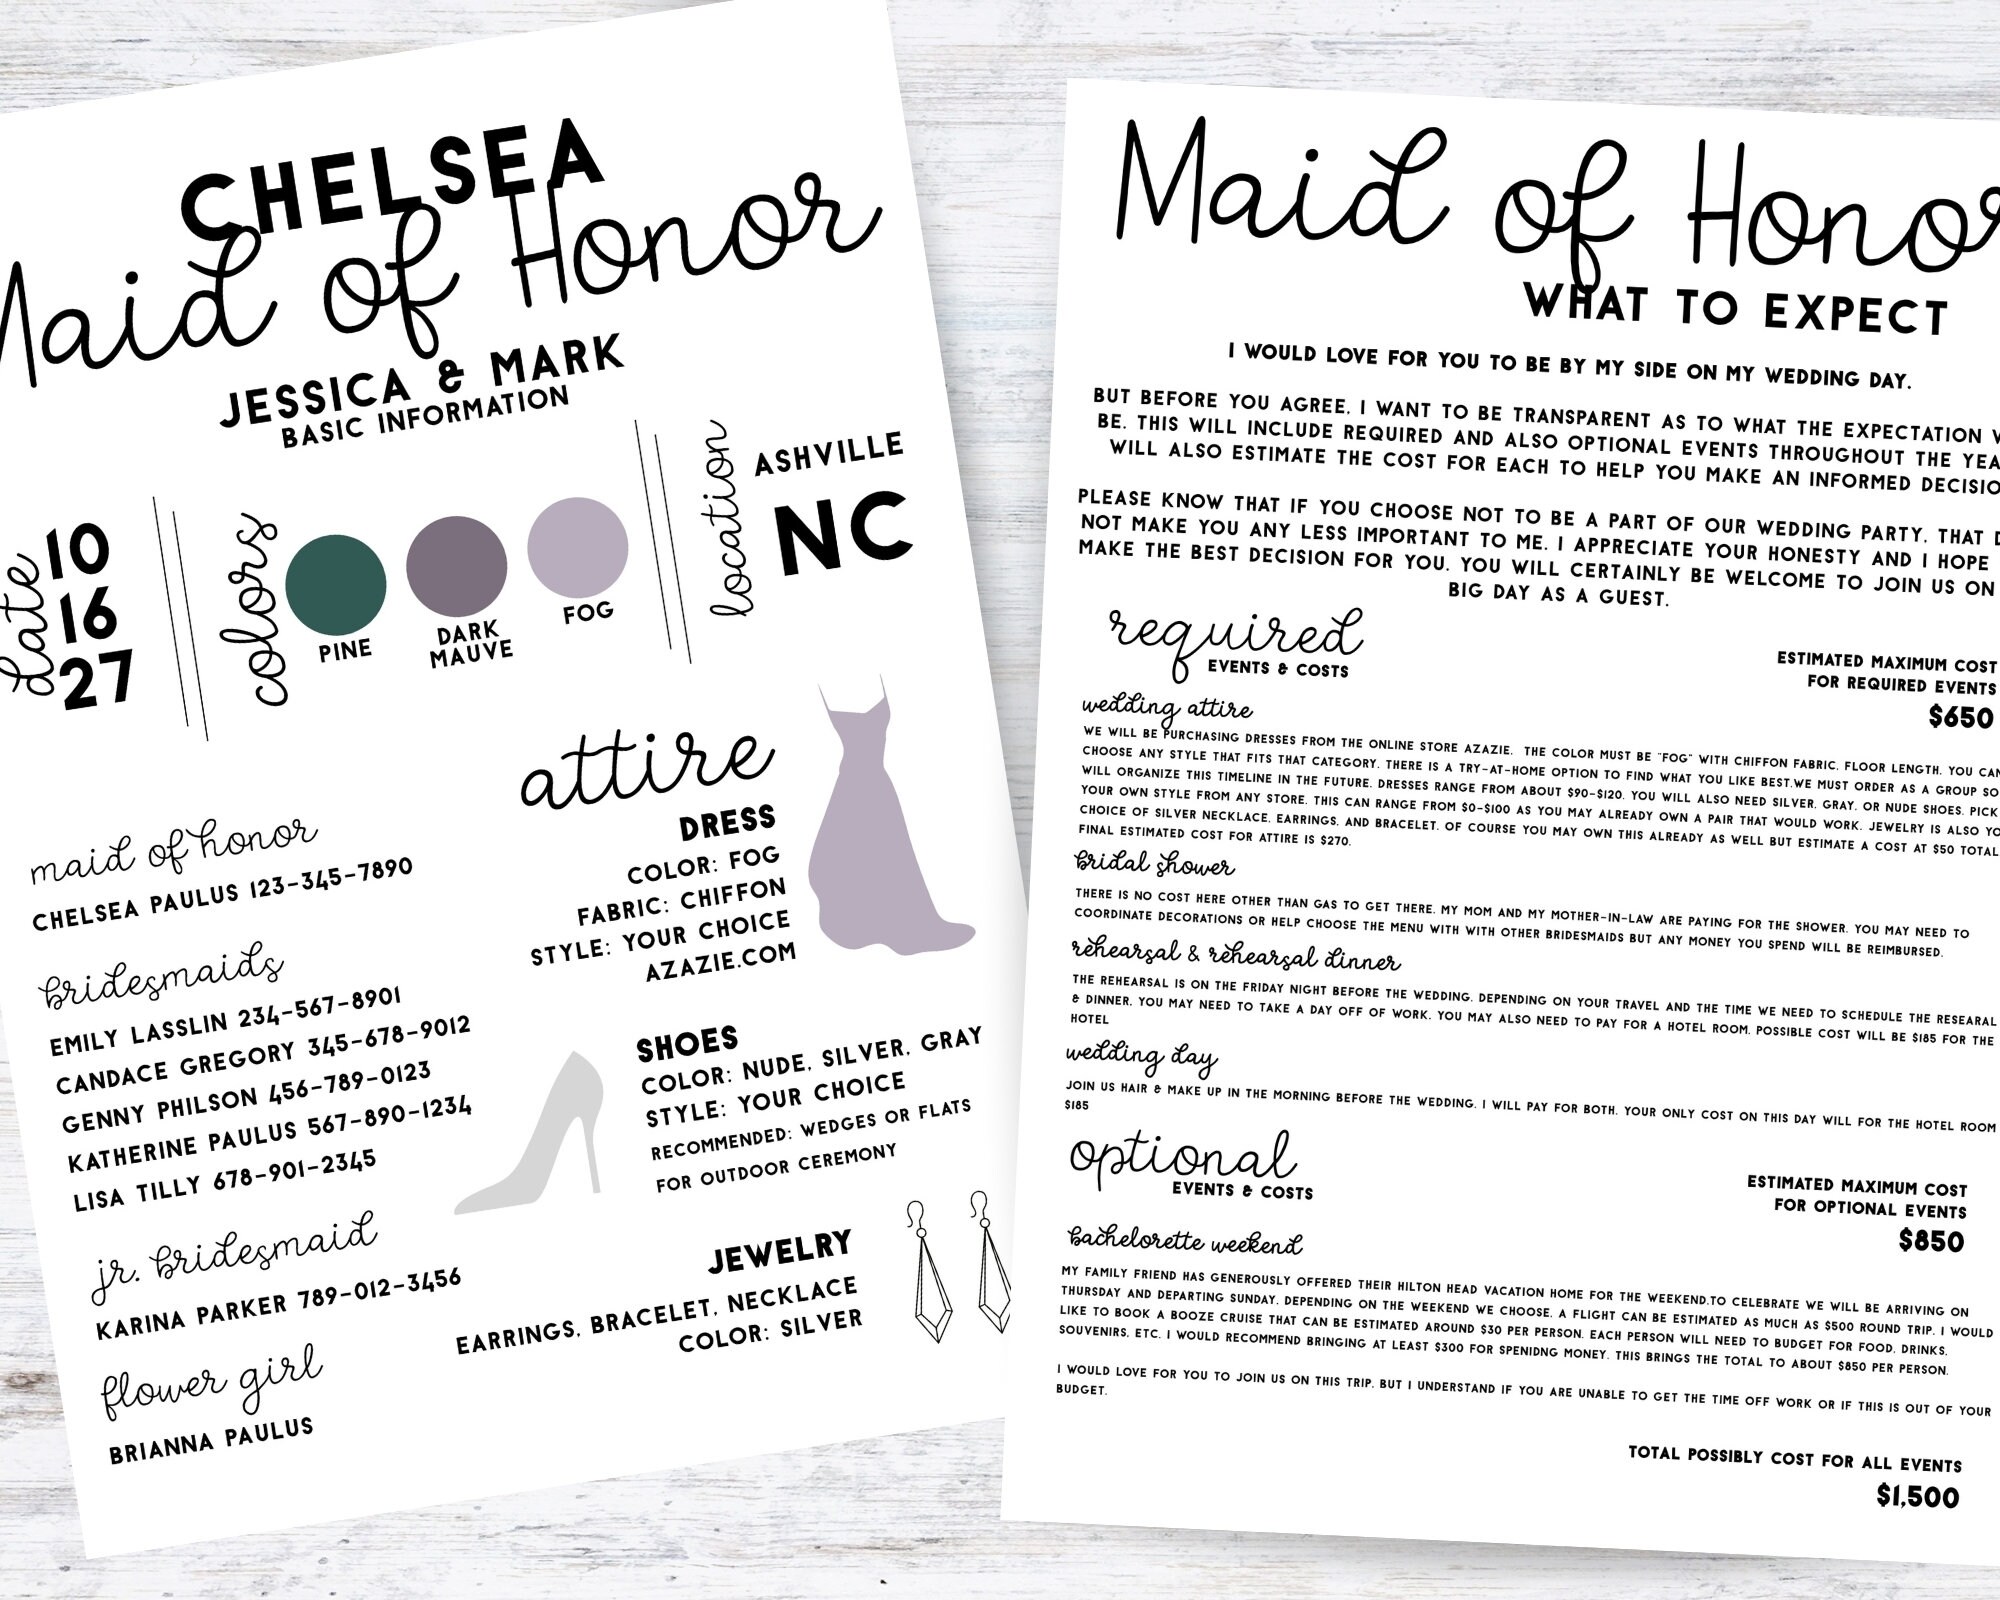 CHELSEA
Maid of Honor
JESSICA & MARK
BASIC INFORMATION
date
10
16
27
colors
PINE
DARK
MAUVE
FOG
location
ASHVILLE
NC
maid of honor
CHELSEA PAULUS 123-345-7890
bridesmaids
EMILY LASSLIN 234-567-8901
CANDACE GREGORY 345-678-9012
GENNY PHILSON 456-789-0123
KATHERINE PAULUS 567-890-1234
LISA TILLY 678-901-2345
jr. bridesmaid
KARINA PARKER 789-012-3456
flower girl
BRIANNA PAULUS
attire
DRESS
COLOR: FOG
FABRIC: CHIFFON
STYLE: YOUR CHOICE
AZAZIE.COM
SHOES
COLOR: NUDE, SILVER, GRAY
STYLE: YOUR CHOICE
RECOMMENDED: WEDGES OR FLATS
FOR OUTDOOR CEREMONY
JEWELRY
EARRINGS, BRACELET, NECKLACE
COLOR: SILVER
Maid of Honor
WHAT TO EXPECT
I WOULD LOVE FOR YOU TO BE BY MY SIDE ON MY WEDDING DAY.
BUT BEFORE YOU AGREE, I WANT TO BE TRANSPARENT AS TO WHAT THE EXPECTATION
BE. THIS WILL INCLUDE REQUIRED AND ALSO OPTIONAL EVENTS THROUGHOUT THE
WILL ALSO ESTIMATE THE COST FOR EACH TO HELP YOU MAKE AN INFORMED
PLEASE KNOW THAT IF YOU CHOOSE NOT TO BE A PART OF OUR WEDDING PARTY, THAT
NOT MAKE YOU ANY LESS IMPORTANT TO ME. I APPRECIATE YOUR HONESTY AND I HOPE
MAKE THE BEST DECISION FOR YOU. YOU WILL CERTAINLY BE WELCOME TO JOIN US ON
BIG DAY AS A GUEST.
required
EVENTS & COSTS
ESTIMATED MAXIMUM COST
FOR REQUIRED EVENTS
$650
wedding attire
WE WILL BE PURCHASING DRESSES FROM THE ONLINE STORE AZAZIE. THE COLOR MUST BE "FOG" WITH CHIFFON FABRIC, FLOOR LENGTH. YOU CAN
CHOOSE ANY STYLE THAT FITS THAT CATEGORY. THERE IS A TRY-AT-HOME OPTION TO FIND WHAT YOU LIKE BEST.WE MUST ORDER AS A GROUP SO
WILL ORGANIZE THIS TIMELINE IN THE FUTURE. DRESSES RANGE FROM ABOUT $90-$120. YOU WILL ALSO NEED SILVER, GRAY, OR NUDE SHOES. PICK
YOUR OWN STYLE FROM ANY STORE. THIS CAN RANGE FROM $0-$100 AS YOU MAY ALREADY OWN A PAIR THAT WOULD WORK. JEWELRY IS ALSO
CHOICE OF SILVER NECKLACE, EARRINGS, AND BRACELET. OF COURSE YOU MAY OWN THIS ALREADY AS WELL BUT ESTIMATE A COST AT $50 TOTAL.
FINAL ESTIMATED COST FOR ATTIRE IS $270.
bridal shower
THERE IS NO COST HERE OTHER THAN GAS TO GET THERE. MY MOM AND MY MOTHER-IN-LAW ARE PAYING FOR THE SHOWER. YOU MAY NEED TO
COORDINATE DECORATIONS OR HELP CHOOSE THE MENU WITH WITH OTHER BRIDESMAIDS BUT ANY MONEY YOU SPEND WILL BE REIMBURSED.
rehearsal & rehearsal dinner
THE REHEARSAL IS ON THE FRIDAY NIGHT BEFORE THE WEDDING. DEPENDING ON YOUR TRAVEL AND THE TIME WE NEED TO SCHEDULE THE RESEARAL
& DINNER, YOU MAY NEED TO TAKE A DAY OFF OF WORK. YOU MAY ALSO NEED TO PAY FOR A HOTEL ROOM. POSSIBLE COST WILL BE $185 FOR THE
HOTEL
wedding day
JOIN US HAIR & MAKE UP IN THE MORNING BEFORE THE WEDDING. I WILL PAY FOR BOTH. YOUR ONLY COST ON THIS DAY WILL FOR THE HOTEL ROOM
$185
optional
EVENTS & COSTS
ESTIMATED MAXIMUM COST
FOR OPTIONAL EVENTS
$850
bachelorette weekend
MY FAMILY FRIEND HAS GENEROUSLY OFFERED THEIR HILTON HEAD VACATION HOME FOR THE WEEKEND.TO CELEBRATE WE WILL BE ARRIVING ON
THURSDAY AND DEPARTING SUNDAY. DEPENDING ON THE WEEKEND WE CHOOSE, A FLIGHT CAN BE ESTIMATED AS MUCH AS $500 ROUND TRIP. I WOULD
LIKE TO BOOK A BOOZE CRUISE THAT CAN BE ESTIMATED AROUND $30 PER PERSON. EACH PERSON WILL NEED TO BUDGET FOR FOOD, DRINKS,
SOUVENIRS, ETC. I WOULD RECOMMEND BRINGING AT LEAST $300 FOR SPENIDNG MONEY. THIS BRINGS THE TOTAL TO ABOUT $850 PER PERSON.
I WOULD LOVE FOR YOU TO JOIN US ON THIS TRIP, BUT I UNDERSTAND IF YOU ARE UNABLE TO GET THE TIME OFF WORK OR IF THIS IS OUT OF YOUR
BUDGET.
TOTAL POSSIBLY COST FOR ALL EVENTS
$1,500